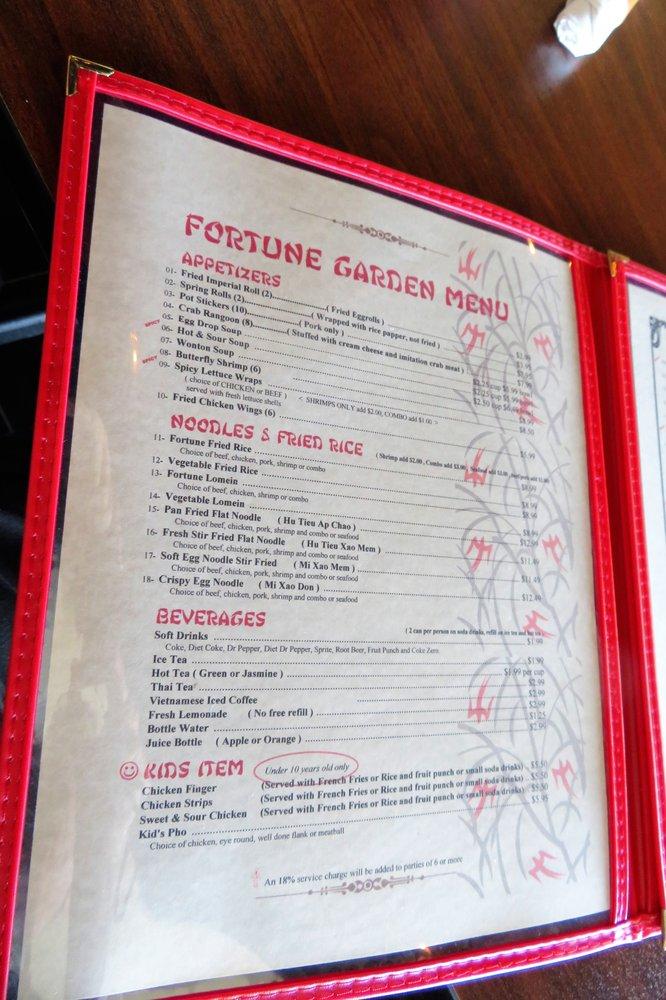 FORTUNE GARDEN MENU
APPETIZERS
01- Fried Imperial Roll (2)...( Fried Eggrolls )
02- Spring Rolls (2)...( Wrapped with rice papper, not fried )
03- Pot Stickers (10)...( Pork only )
04- Crab Rangoon (8)...( Stuffed with cream cheese and imitation crab meat )
05- Egg Drop Soup
SPICY 06- Hot & Sour Soup
07- Wonton Soup
08- Butterfly Shrimp (6)
SPICY 09- Spicy Lettuce Wraps
( choice of CHICKEN or BEEF ) < SHRIMPS ONLY add $2.00, COMBO add $1.00 >
served with fresh lettuce shells $8.50
10- Fried Chicken Wings (6) $5.99
NOODLES & FRIED RICE
( Shrimp add $2.00 , Combo add $3.00,
11- Fortune Fried Rice
Choice of beef, chicken, pork, shrimp or combo
12- Vegetable Fried Rice
13- Fortune Lomein
Choice of beef, chicken, shrimp or combo
14- Vegetable Lomein
15- Pan Fried Flat Noodle ( Hu Tieu Ap Chao )
Choice of beef, chicken, pork, shrimp and combo or seafood
16- Fresh Stir Fried Flat Noodle ( Hu Tieu Xao Mem )
Choice of beef, chicken, pork, shrimp and combo or seafood
17- Soft Egg Noodle Stir Fried ( Mi Xao Mem ) $11.49
Choice of beef, chicken, pork, shrimp and combo or seafood
18- Crispy Egg Noodle ( Mi Xao Don ) $12.49
Choice of beef, chicken, pork, shrimp and combo or seafood
BEVERAGES
( 2 can per person on soda drinks, refill on ice tea and hot tea )
Soft Drinks $1.99
Coke, Diet Coke, Dr Pepper, Diet Dr Pepper, Sprite, Root Beer, Fruit Punch and Coke Zero.
Ice Tea $1.99
Hot Tea ( Green or Jasmine ) $1.99 per cup
Thai Tea $2.99
Vietnamese Iced Coffee $2.99
Fresh Lemonade ( No free refill ) $2.99
Bottle Water $1.25
Juice Bottle ( Apple or Orange ) $2.99
KIDS ITEM Under 10 years old only
Chicken Finger (Served with French Fries or Rice and fruit punch or small soda drinks) $5.50
Chicken Strips (Served with French Fries or Rice and fruit punch or small soda drinks) $5.50
Sweet & Sour Chicken (Served with French Fries or Rice and fruit punch or small soda drinks) $5.50
Kid's Pho $5.95
Choice of chicken, eye round, well done flank or meatball
An 18% service charge will be added to parties of 6 or more